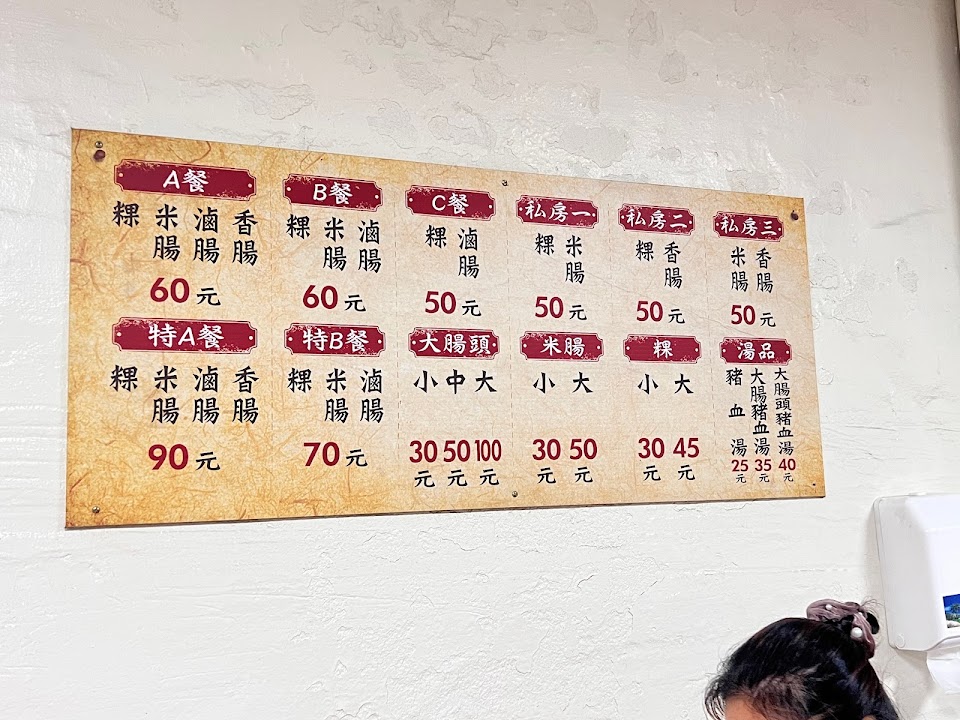 A餐
粿 米腸 滷腸 香腸
60元
B餐
粿 米腸 滷腸
60元
C餐
粿 滷腸
50元
私房一
粿 米腸
50元
私房二
粿 香腸
50元
私房三
米腸 香腸
50元
特A餐
粿 米腸 滷腸 香腸
90元
特B餐
粿 米腸 滷腸
70元
大腸頭
小 中 大
30 50 100
元 元 元
米腸
小 大
30 50
元 元
粿
小 大
30 45
元 元
湯品
豬血湯 25元
大腸豬血湯 35元
大腸頭豬血湯 40元